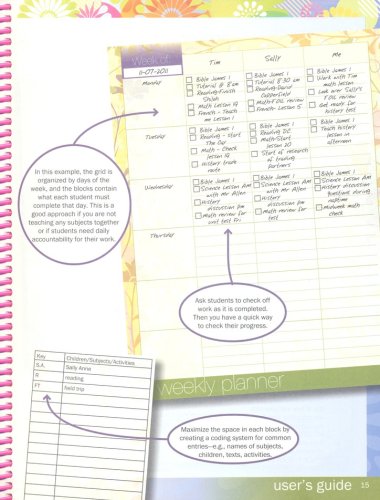 Week of
11-07-2011
Tim
Sally
Me
Monday
Bible James 1
Tutorial @ 8 am
Reading-Finish
Shiloh
Math Lesson 19
French - Teach
me Lesson 1
Bible James 1
Tutorial 8:30 am
Reading-David
Copperfield
Math-Foil review
French - Lesson 5
Bible James 1
Work with Tim
math lesson
Look over Sally's
Foil review
Get ready for
history test
Tuesday
Bible James 1
Reading - Start
The Car
Math - Check
lesson 19
History trade
route
Bible James 1
Reading DC
Math-Start
lesson 20
Start of research
of trading
Partners
Bible James 1
Teach history
lesson in
afternoon
Wednesday
Bible James 1
Science Lesson 9am
with Mr Allen
History
discussion pm
Math review for
unit test Fri.
Bible James 1
Science Lesson 9am
with Mr Allen
History
discussion pm
Math review for
Bible James 1
Science Lesson 9am
History discussion
questions during
naptime
Midweek math
check
Thursday
In this example, the grid is
organized by days of the
week, and the blocks contain
what each student must
complete that day. This is a
good approach if you are not
teaching any subjects together
or if students need daily
accountability for their work.
Ask students to check off
work as it is completed.
Then you have a quick way
to check their progress.
weekly planner
Key
Children/Subjects/Activities
S.A.
Sally Anne
R
reading
FT
field trip
Maximize the space in each block by
creating a coding system for common
entries—e.g., names of subjects,
children, texts, activities.
user's guide 15